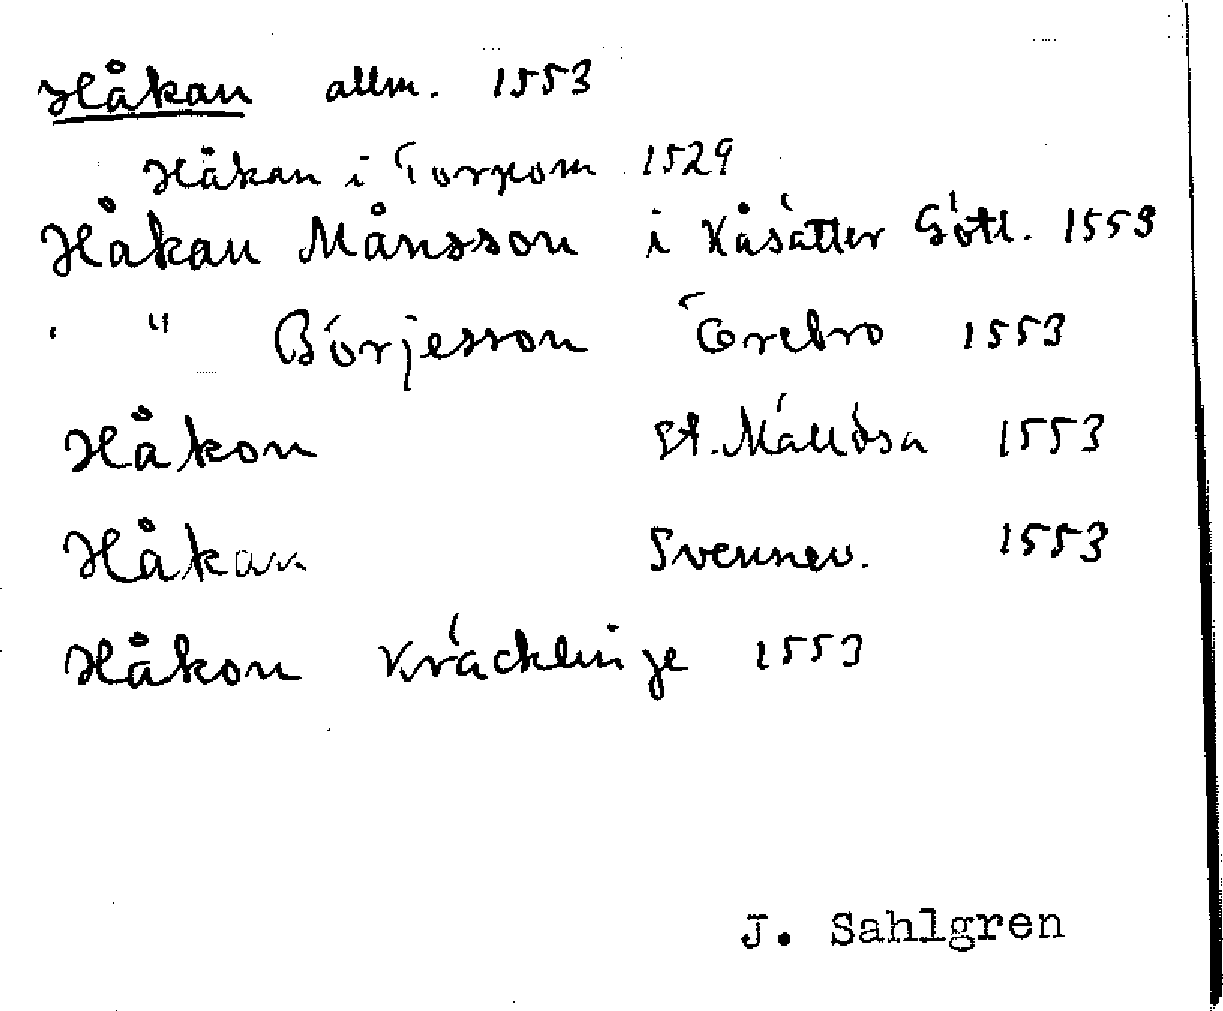 Håkan allm. 1553
Håkan i Torpom 1529
Håkan Månsson i Kåsätter Götl. 1553
" " Börjesson Örebro 1553
Håkon St. Mällösa 1553
Håkan Svennev. 1553
Håkon Kräcklinge 1553
J. Sahlgren